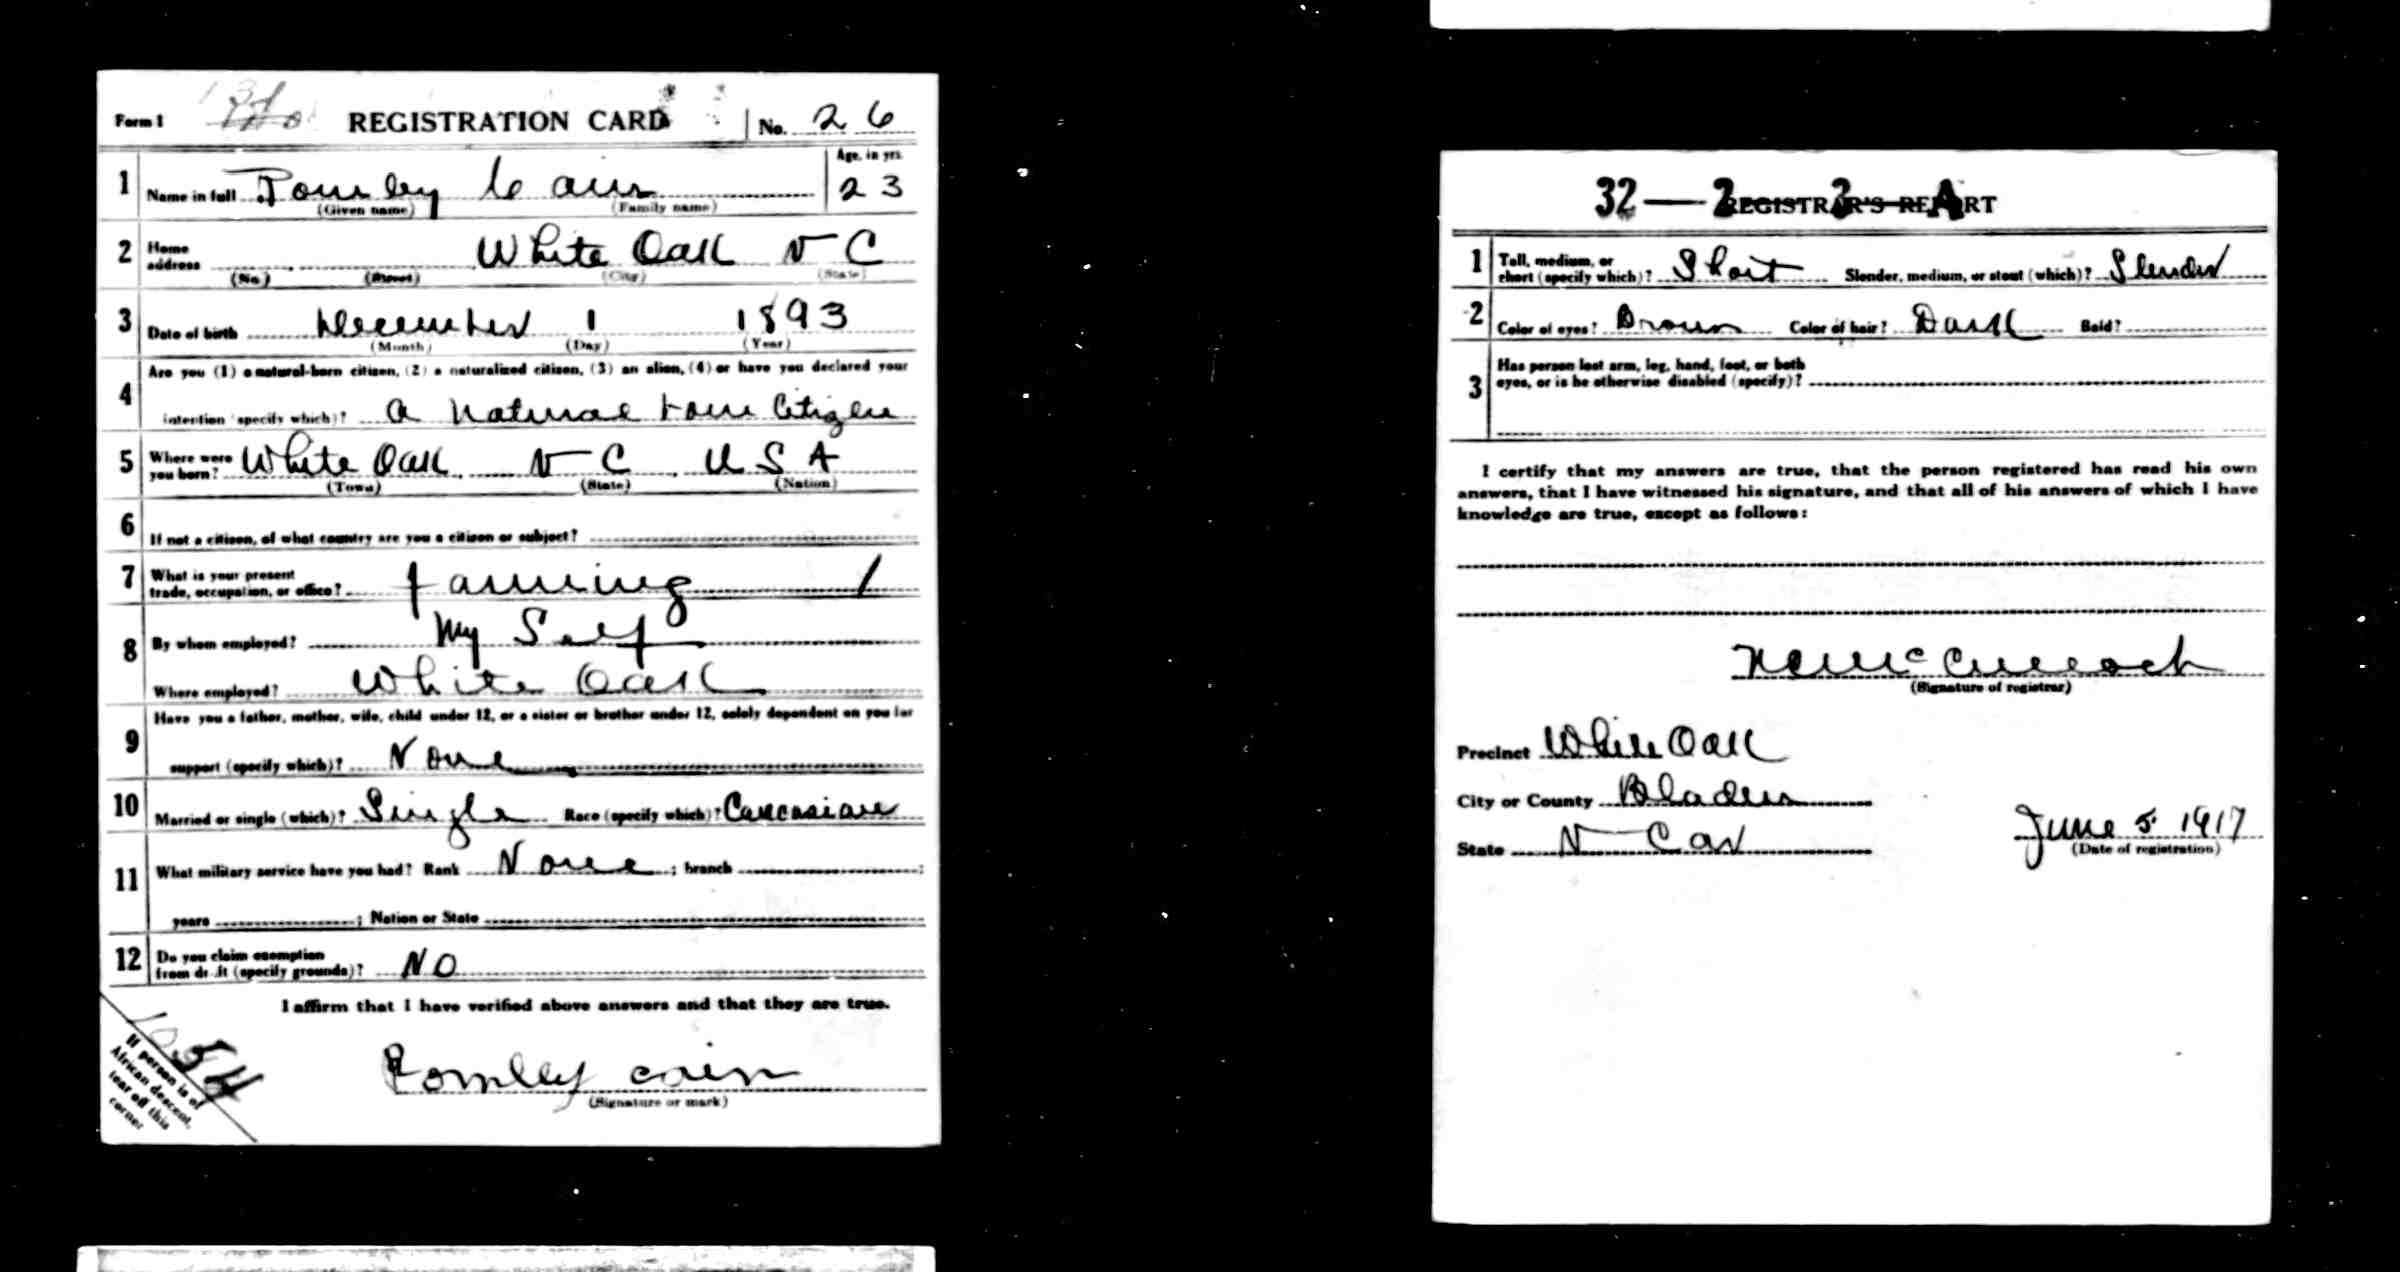 Form 1 REGISTRATION CARD No. 26
1 Name in full Pomley Cain Age, in yrs. 23
(Given name) (Family name)
2 Home address White Oak N C
(No.) (Street) (City) (State)
3 Date of birth December 1 1893
(Month) (Day) (Year)
4 Are you (1) a natural-born citizen, (2) a naturalized citizen, (3) an alien, (4) or have you declared your
intention (specify which)? a natural born Citizen
5 Where were you born? White Oak N C U S A
(Town) (State) (Nation)
6 If not a citizen, of what country are you a citizen or subject?
7 What is your present
trade, occupation, or office? farming 1
8 By whom employed? My Self
Where employed? White Oak
9 Have you a father, mother, wife, child under 12, or a sister or brother under 12, solely dependent on you for
support (specify which)? None
10 Married or single (which)? Single Race (specify which)? Caucasian
11 What military service have you had? Rank None ; branch ;
years ; Nation or State
12 Do you claim exemption
from draft (specify grounds)? NO
I affirm that I have verified above answers and that they are true.
Pomley cain
(Signature or mark)
If person is of
African descent,
tear off this
corner
32—2—3—A
REGISTRAR'S REPORT
1 Tall, medium, or
short (specify which)? Short Slender, medium, or stout (which)? Slender
2 Color of eyes? Brown Color of hair? Dark Bald?
3 Has person lost arm, leg, hand, foot, or both
eyes, or is he otherwise disabled (specify)?
I certify that my answers are true, that the person registered has read his own
answers, that I have witnessed his signature, and that all of his answers of which I have
knowledge are true, except as follows:
McCulloch
(Signature of registrar)
Precinct White Oak
City or County Bladen
State N Car
June 5 1917
(Date of registration)